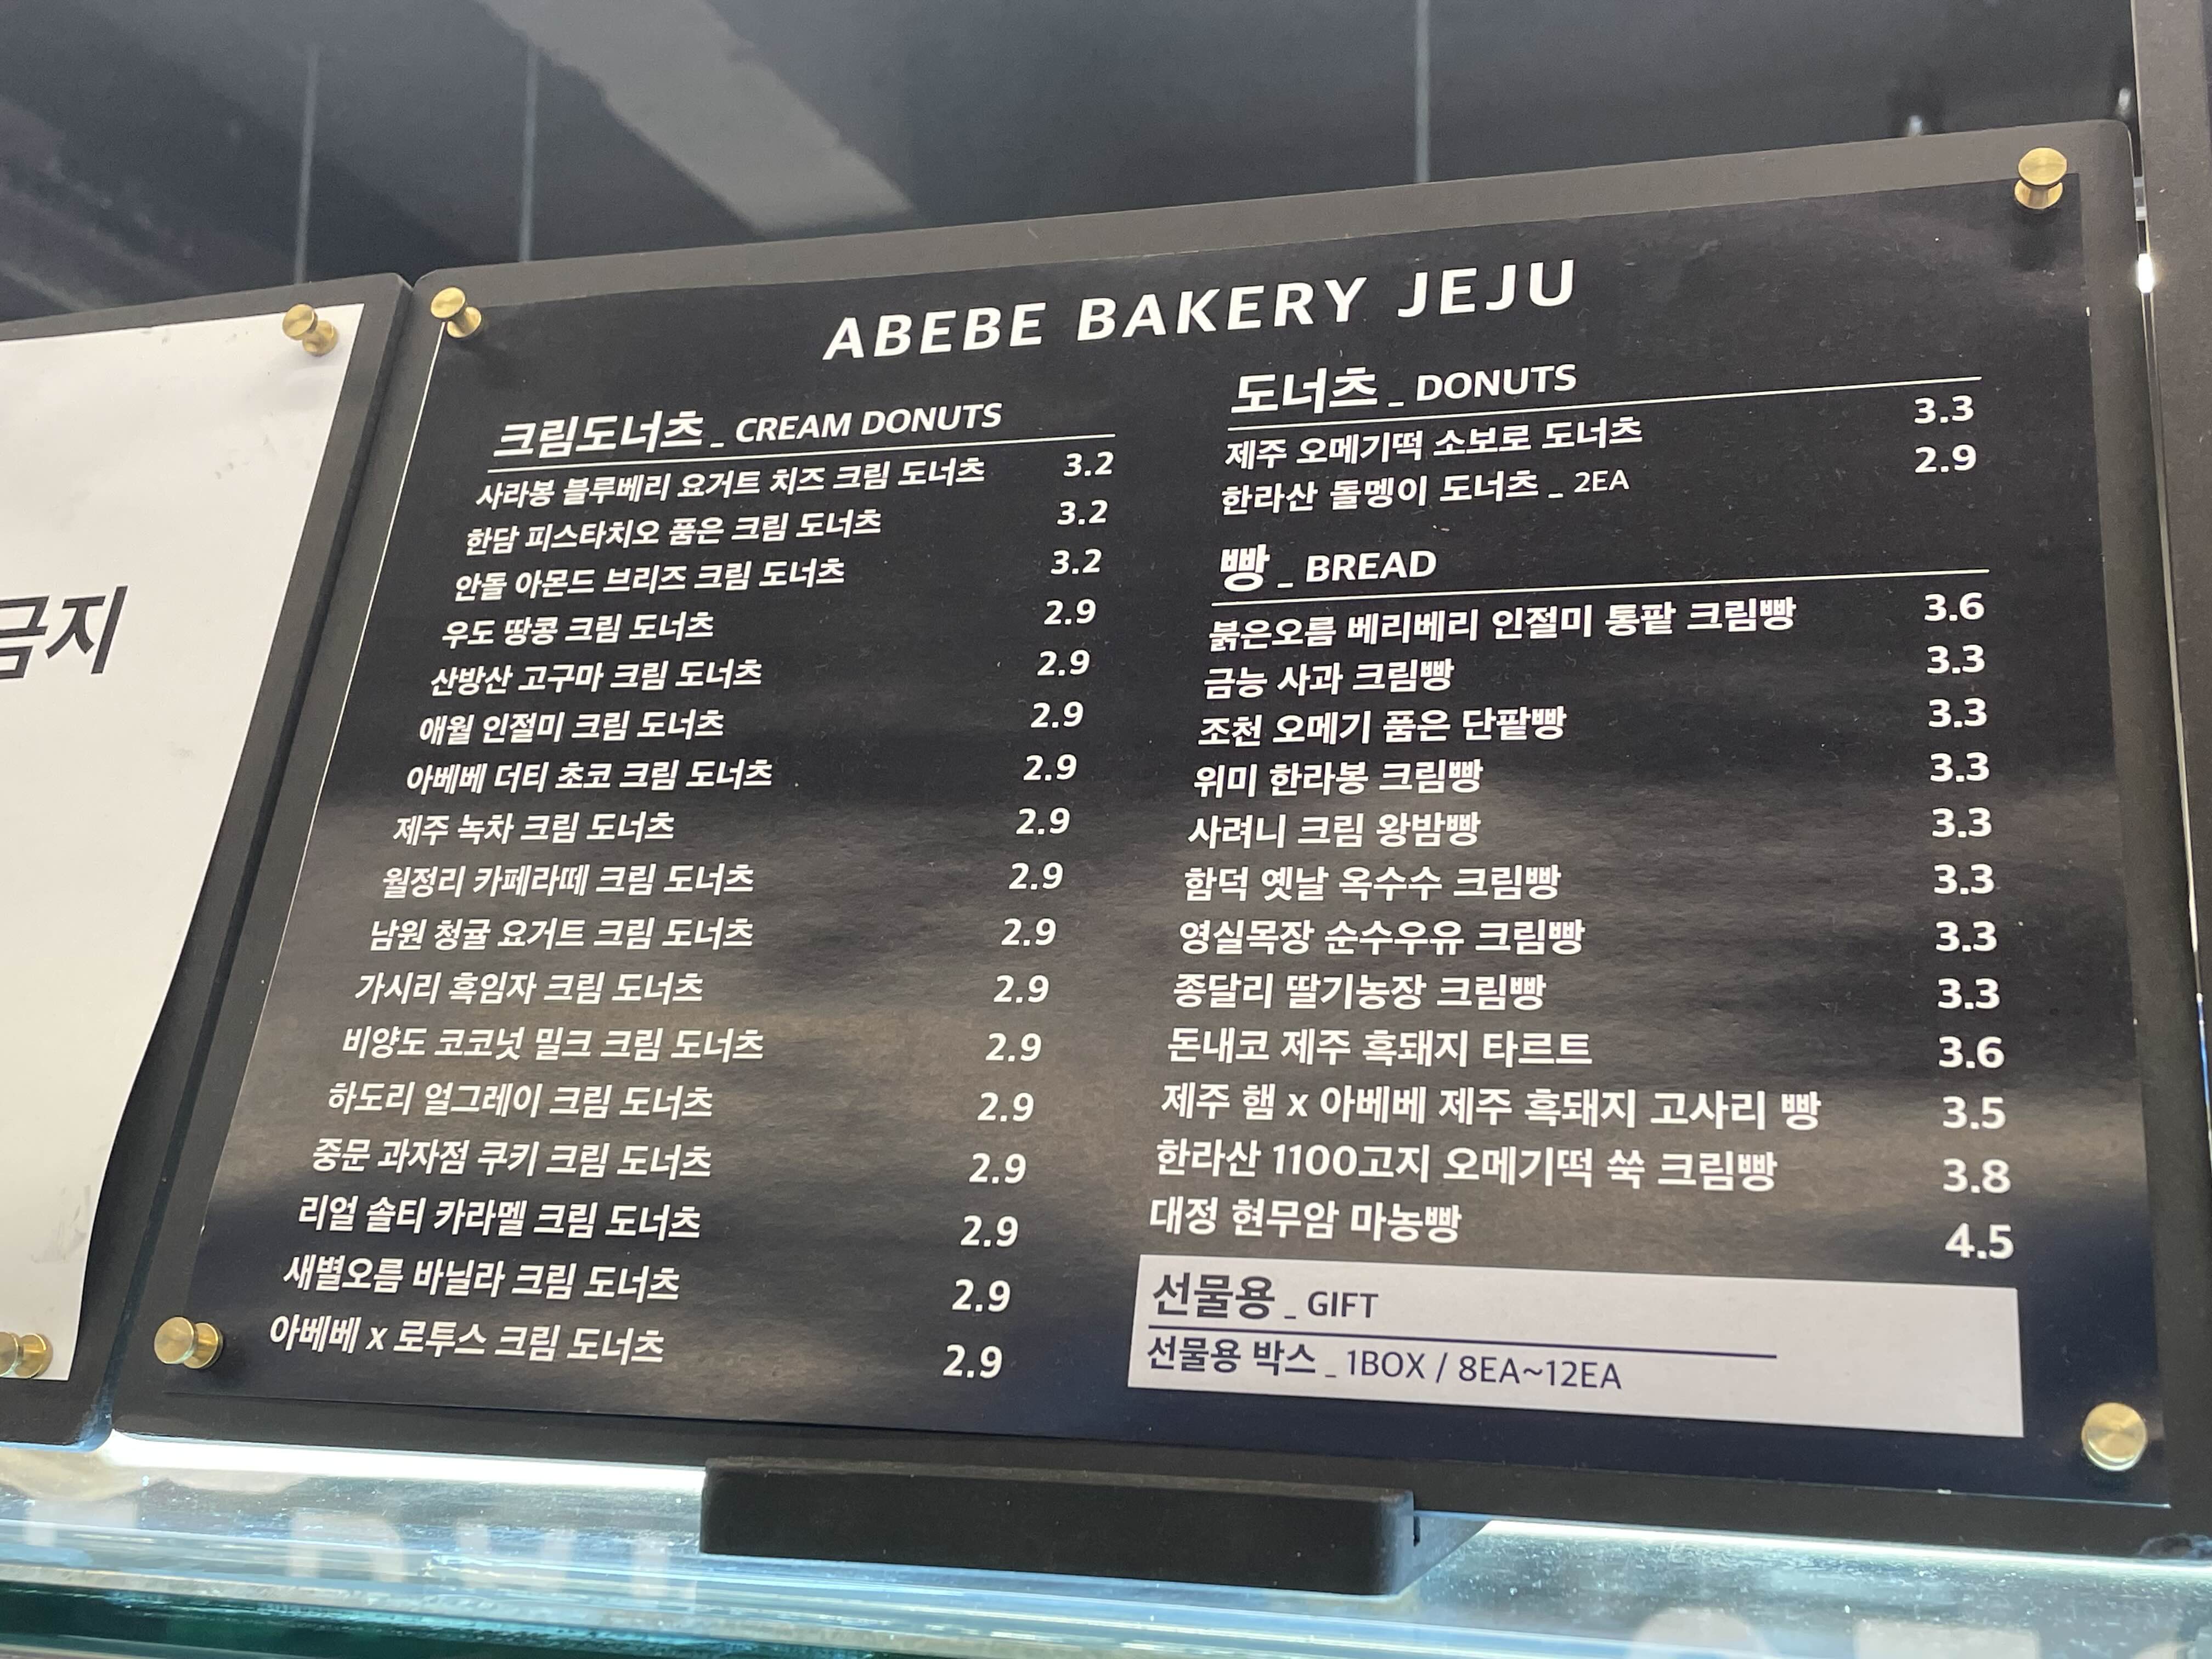 금지
ABEBE BAKERY JEJU
크림도너츠 _ CREAM DONUTS
사라봉 블루베리 요거트 치즈 크림 도너츠 3.2
한담 피스타치오 품은 크림 도너츠 3.2
안돌 아몬드 브리즈 크림 도너츠 3.2
우도 땅콩 크림 도너츠 2.9
산방산 고구마 크림 도너츠 2.9
애월 인절미 크림 도너츠 2.9
아베베 더티 초코 크림 도너츠 2.9
제주 녹차 크림 도너츠 2.9
월정리 카페라떼 크림 도너츠 2.9
남원 청귤 요거트 크림 도너츠 2.9
가시리 흑임자 크림 도너츠 2.9
비양도 코코넛 밀크 크림 도너츠 2.9
하도리 얼그레이 크림 도너츠 2.9
중문 과자점 쿠키 크림 도너츠 2.9
리얼 솔티 카라멜 크림 도너츠 2.9
새별오름 바닐라 크림 도너츠 2.9
아베베 x 로투스 크림 도너츠 2.9
도너츠 _ DONUTS
제주 오메기떡 소보로 도너츠 3.3
한라산 돌멩이 도너츠 _ 2EA 2.9
빵 _ BREAD
붉은오름 베리베리 인절미 통팥 크림빵 3.6
금능 사과 크림빵 3.3
조천 오메기 품은 단팥빵 3.3
위미 한라봉 크림빵 3.3
사려니 크림 왕밤빵 3.3
함덕 옛날 옥수수 크림빵 3.3
영실목장 순수우유 크림빵 3.3
종달리 딸기농장 크림빵 3.3
돈내코 제주 흑돼지 타르트 3.6
제주 햄 x 아베베 제주 흑돼지 고사리 빵 3.5
한라산 1100고지 오메기떡 쑥 크림빵 3.8
대정 현무암 마농빵 4.5
선물용 _ GIFT
선물용 박스 _ 1BOX / 8EA~12EA